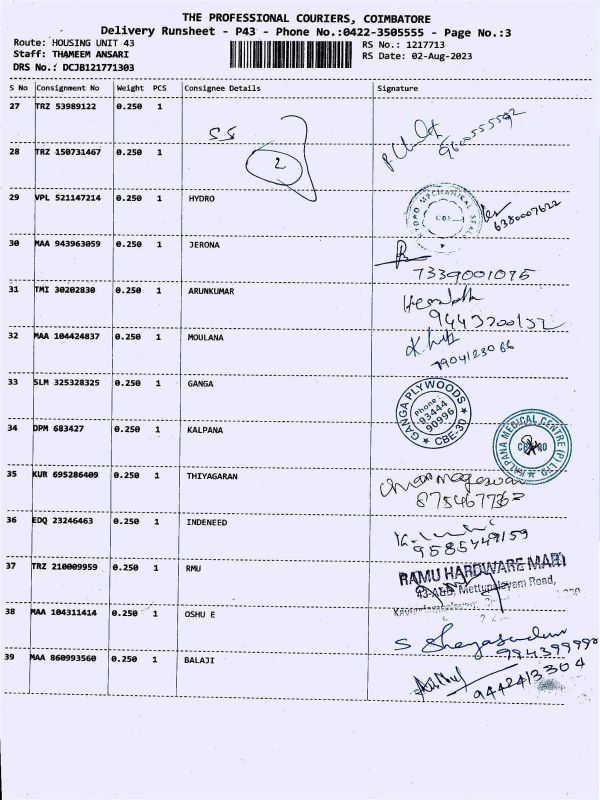 THE PROFESSIONAL COURIERS, COIMBATORE
Delivery Runsheet - P43 - Phone No.:0422-3505555 - Page No.:3
Route: HOUSING UNIT 43 RS No.: 1217713
Staff: THAMEEM ANSARI RS Date: 02-Aug-2023
DRS No.: DCJB121771303
S No Consignment No Weight PCS Consignee Details Signature
27 TRZ 53989122 0.250 1
SS
9600555592
28 TRZ 150731467 0.250 1
2
29 VPL 521147214 0.250 1 HYDRO
HYDRO MECHANICAL SEAL
6380007622
30 MAA 943963059 0.250 1 JERONA
7339001075
31 TMI 30202830 0.250 1 ARUNKUMAR
32 MAA 104424837 0.250 1 MOULANA
7904123066
33 SLM 325328325 0.250 1 GANGA
GANGA PLYWOODS
Phone:
93444
90996
CBE-30
34 DPM 683427 0.250 1 KALPANA
KALPANA MEDICAL CENTRE (P) LTD
35 KUR 695286409 0.250 1 THIYAGARAN
36 EDQ 23246463 0.250 1 INDENEED
9585449159
37 TRZ 210009959 0.250 1 RMU
RAMU HARDWARE MART
Mettupalayam Road,
38 MAA 104311414 0.250 1 OSHU E
39 MAA 860993560 0.250 1 BALAJI
9442413304